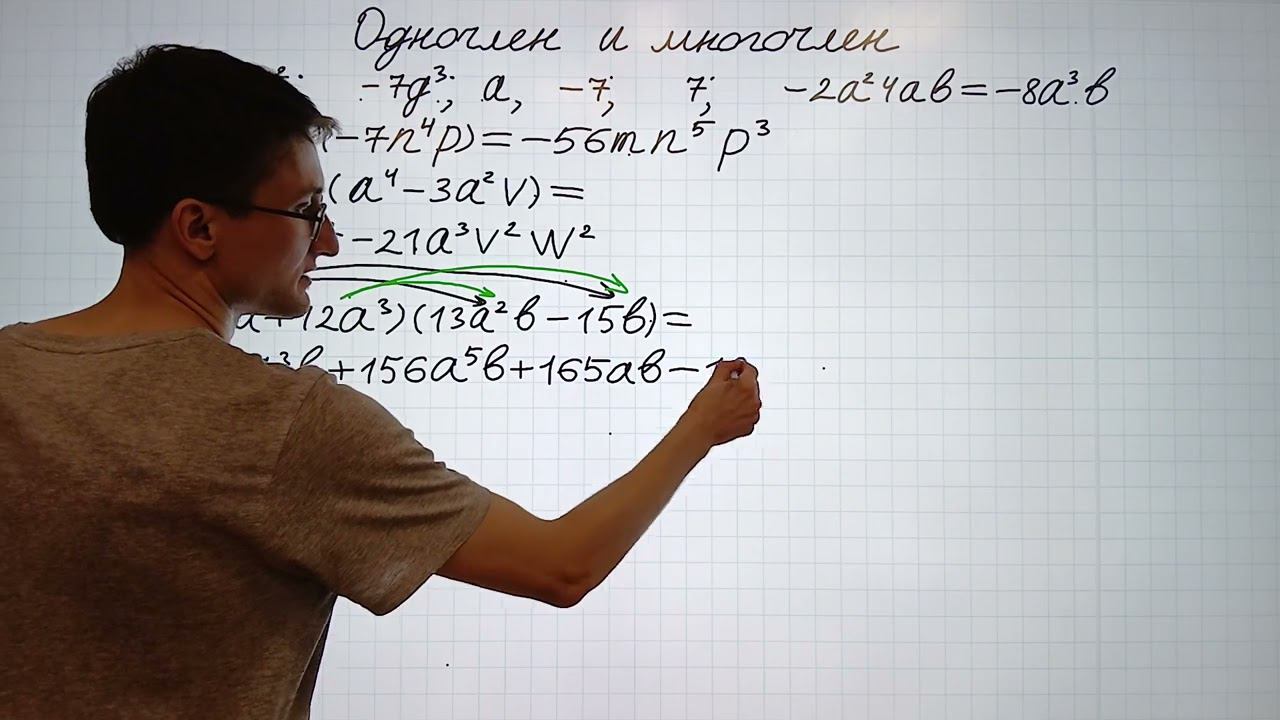 Одночлен и многочлен
-7g³; a, -7; 7; -2a²4ab=-8a³b
(-7n⁴p)=-56mn⁵p³
(a⁴-3a²v)=
-21a³v²w²
a+12a³)(13a²b-15b)=
³b+156a⁵b+165ab-1